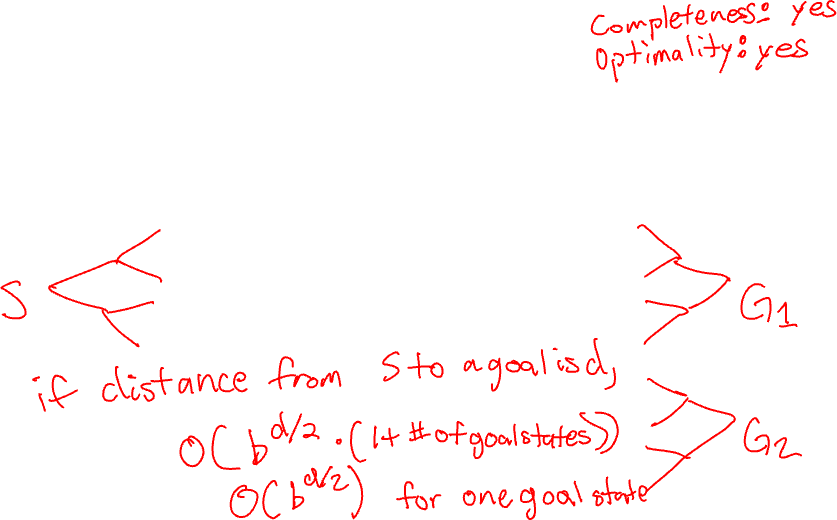 Completeness: yes
Optimality: yes
S
G1
if distance from S to a goal is d,
O(b^d/2 · (1+ # of goal states))
G2
O(b^d/2) for one goal state